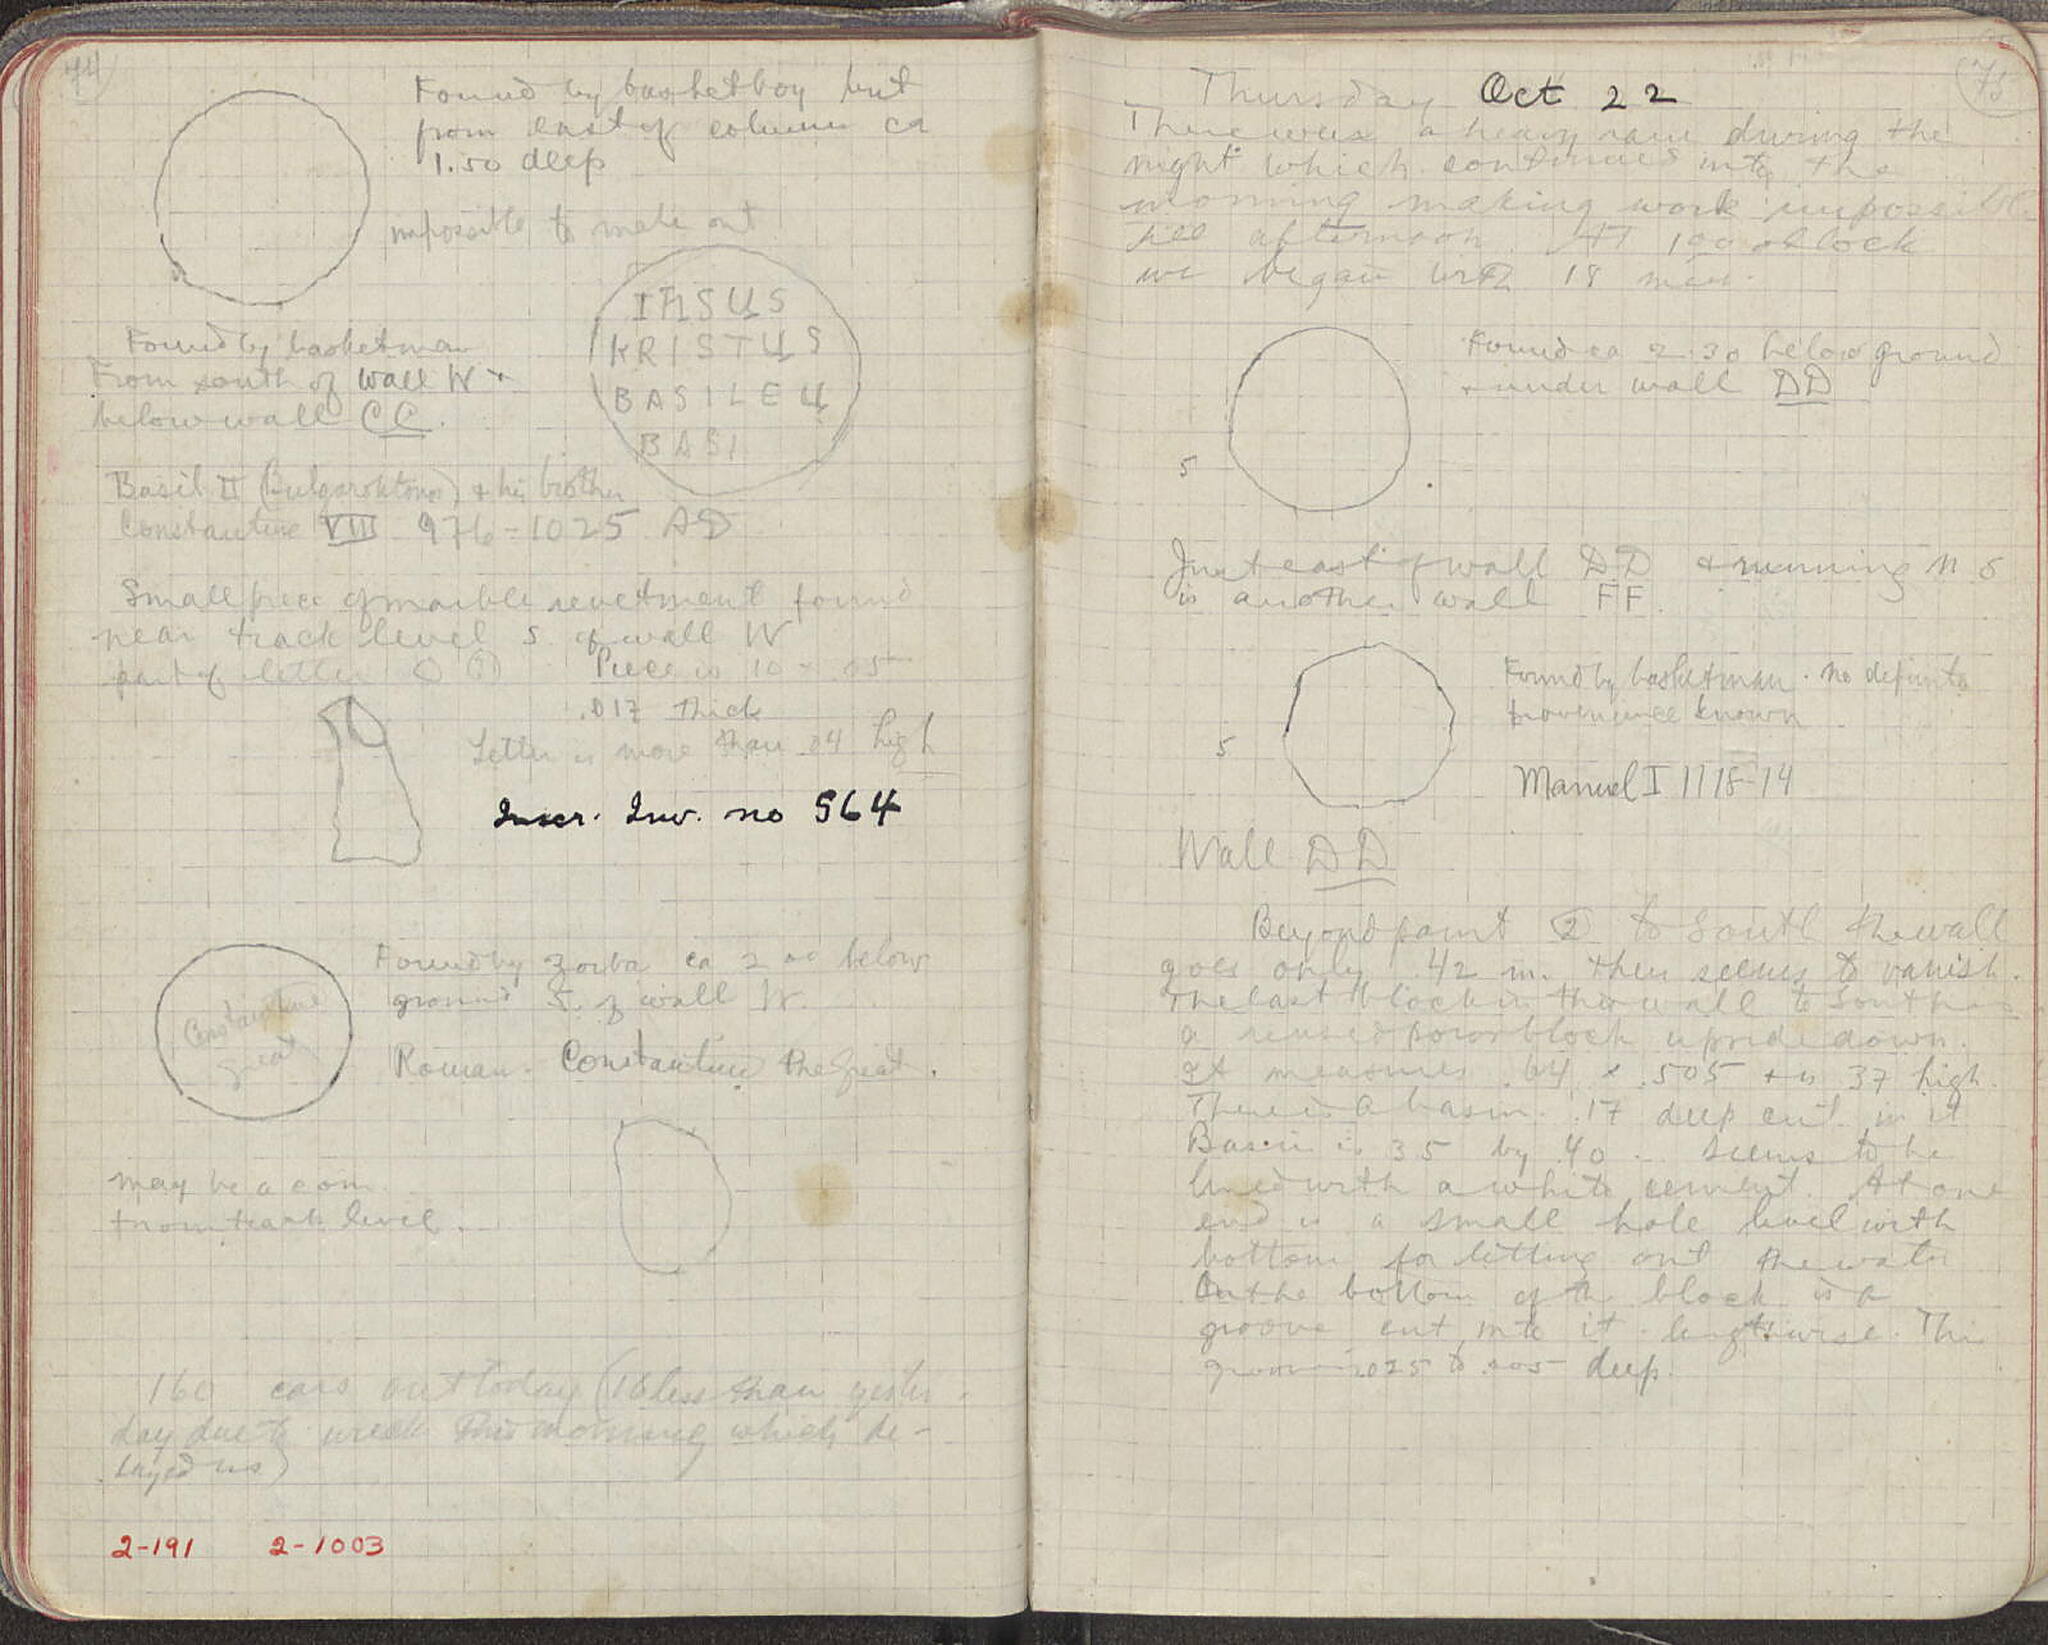 74
Found by basketboy but
from east of column ca
1.50 deep
impossible to make out
IHSUS
KRISTUS
BASILEU
BASI
Found by basketman
From south of wall W +
below wall CC.
Basil II (Bulgaroktonos) + his brother
Constantine VIII 976-1025 AD
Small piece of marble revetment found
near track level S. of wall W
part of letter O (?) Piece is 10 × .05
.017 thick
Letter is more than .04 high
Inscr. Inv. no 564
Constantine
Great
Found by Zorba ca 2 00 below
ground S. of wall W.
Roman. Constantine the Great.
may be a coin
from track level.
160 cars out today (16 less than yester-
day due to wreck this morning which de-
layed us)
2-191 2-1003
75
Thursday Oct 22
There was a heavy rain during the
night which continued into the
morning making work impossible
till afternoon. At 1 00 oclock
we began with 18 men.
Found ca 2.30 below ground
+ under wall DD
5
Just east of wall DD + running N S
is another wall FF.
Found by basketman. No definite
provenience known
5
Manuel I 1118-14
Wall DD
Beyond point 2 to South the wall
goes only .42 m. then seems to vanish.
The last block in the wall to South is
a reused poros block upside down.
It measures .64 × .505 + is 37 high.
There is a basin .17 deep cut in it
Basin is 35 by .40. Seems to be
lined with a white cement. At one
end is a small hole level with
bottom for letting out the water
On the bottom of the block is a
groove cut into it lengthwise. This
groove .025 to .05 deep.